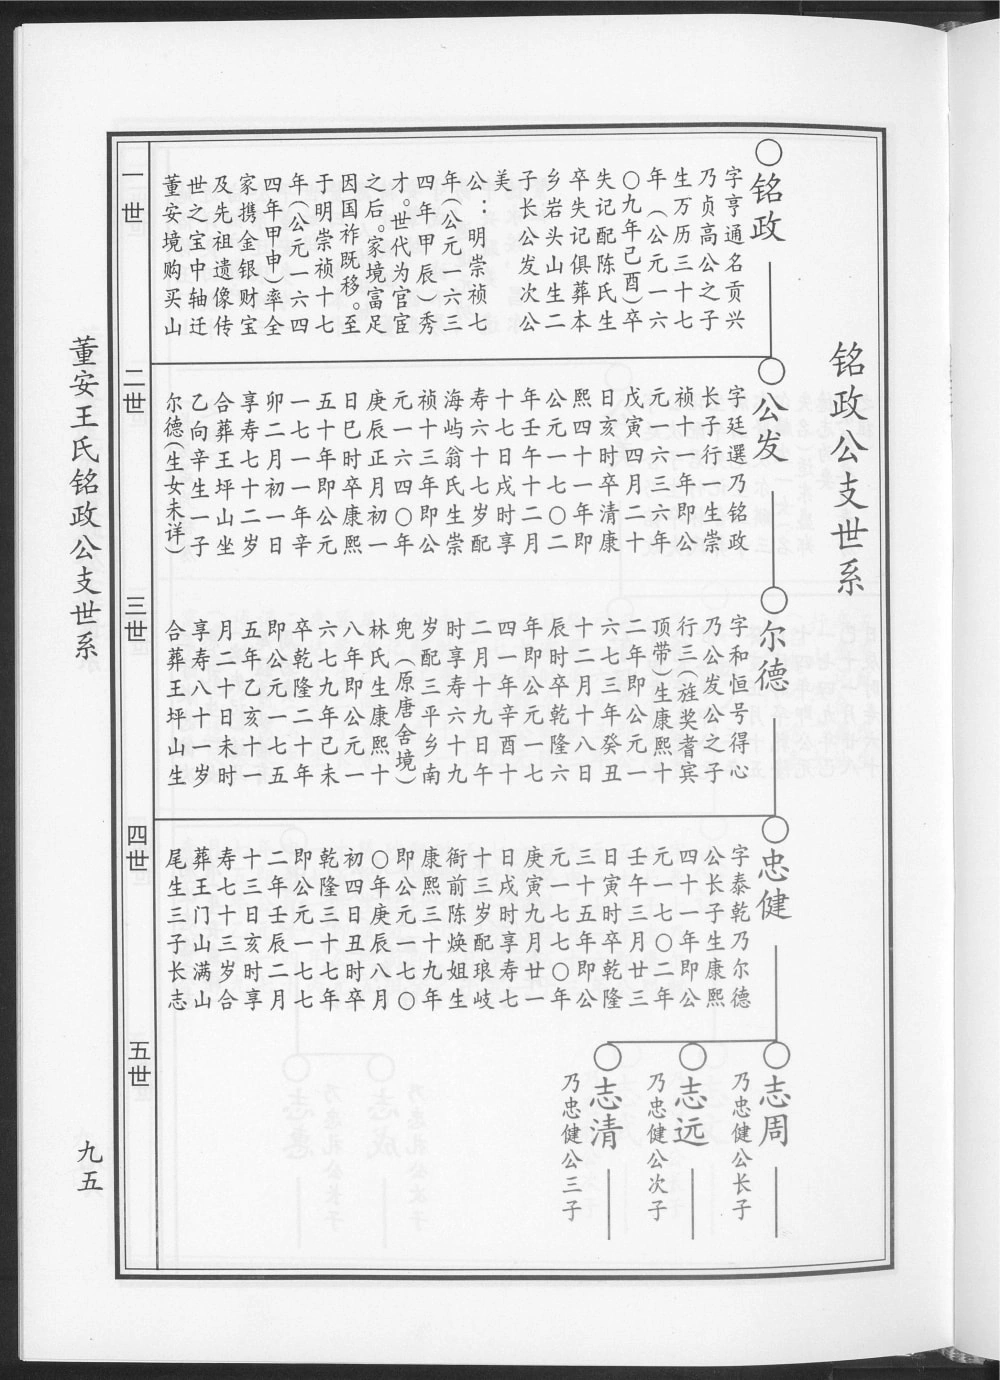 铭政公支世系
一世
铭政
字亨通名贡兴
乃贞高公之子
生万历三十七
年（公元一六
〇九年己酉）卒
失记配陈氏生
卒失记俱葬本
乡岩头山生二
子长公发次公
美
公：明崇祯七
年（公元一六三
四年甲辰）秀
才。世代为官宦
之后。家境富足
因国祚既移。至
于明崇祯十七
年（公元一六四
四年甲申）率全
家携金银财宝
及先祖遗像传
世之宝中轴迁
董安境购买山
二世
公发
字廷選乃铭政
长子行一生崇
祯十一年即公
元一六三六年
戊寅四月二十
日亥时卒清康
熙四十一年即
公元一七〇二
年壬午十二月
十七日戌时享
寿六十七岁配
海屿翁氏生崇
祯十三年即公
元一六四〇年
庚辰正月初一
日巳时卒康熙
五十年即公元
一七一一年辛
卯二月初一日
享寿七十二岁
合葬王坪山坐
乙向辛生一子
尔德（生女未详）
三世
尔德
字和恒号得心
乃公发公之子
行三（旌奖耆宾
顶带）生康熙十
二年即公元一
六七三年癸丑
十二月十八日
辰时卒乾隆六
年即公元一七
四一年辛酉十
二月十九日午
时享寿六十九
岁配三平乡南
兜（原唐舍境）
林氏生康熙十
八年即公元一
六七九年己未
卒乾隆二十年
即公元一七五
五年乙亥十一
月二十日未时
享寿八十一岁
合葬王坪山生
四世
忠健
字泰乾乃尔德
公长子生康熙
四十一年即公
元一七〇二年
壬午三月廿三
日寅时卒乾隆
三十五年即公
元一七七〇年
庚寅九月廿一
日戌时享寿七
十三岁配琅岐
衙前陈焕姐生
康熙三十九年
即公元一七〇
〇年庚辰八月
初四日丑时卒
乾隆三十七年
即公元一七七
二年壬辰二月
十三日亥时享
寿七十三岁合
葬王门山满山
尾生三子长志
五世
志周
乃忠健公长子
志远
乃忠健公次子
志清
乃忠健公三子
董安王氏铭政公支世系
九五